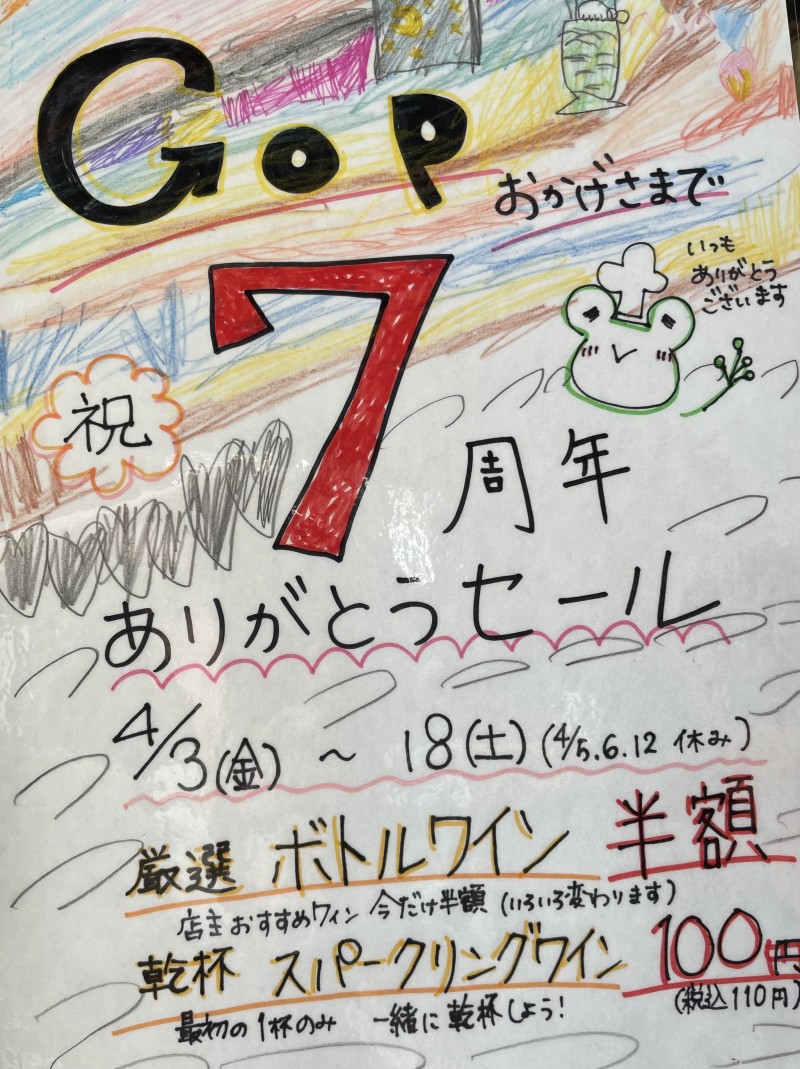 Gop
おかげさまで
いつも
ありがとう
ございます
祝
7周年
ありがとうセール
4/3(金) ～ 18(土) (4/5.6.12 休み)
厳選 ボトルワイン 半額
店主おすすめワイン 今だけ半額 (いろいろ変わります)
乾杯 スパークリングワイン 100円
(税込110円)
最初の1杯のみ 一緒に乾杯しよう!